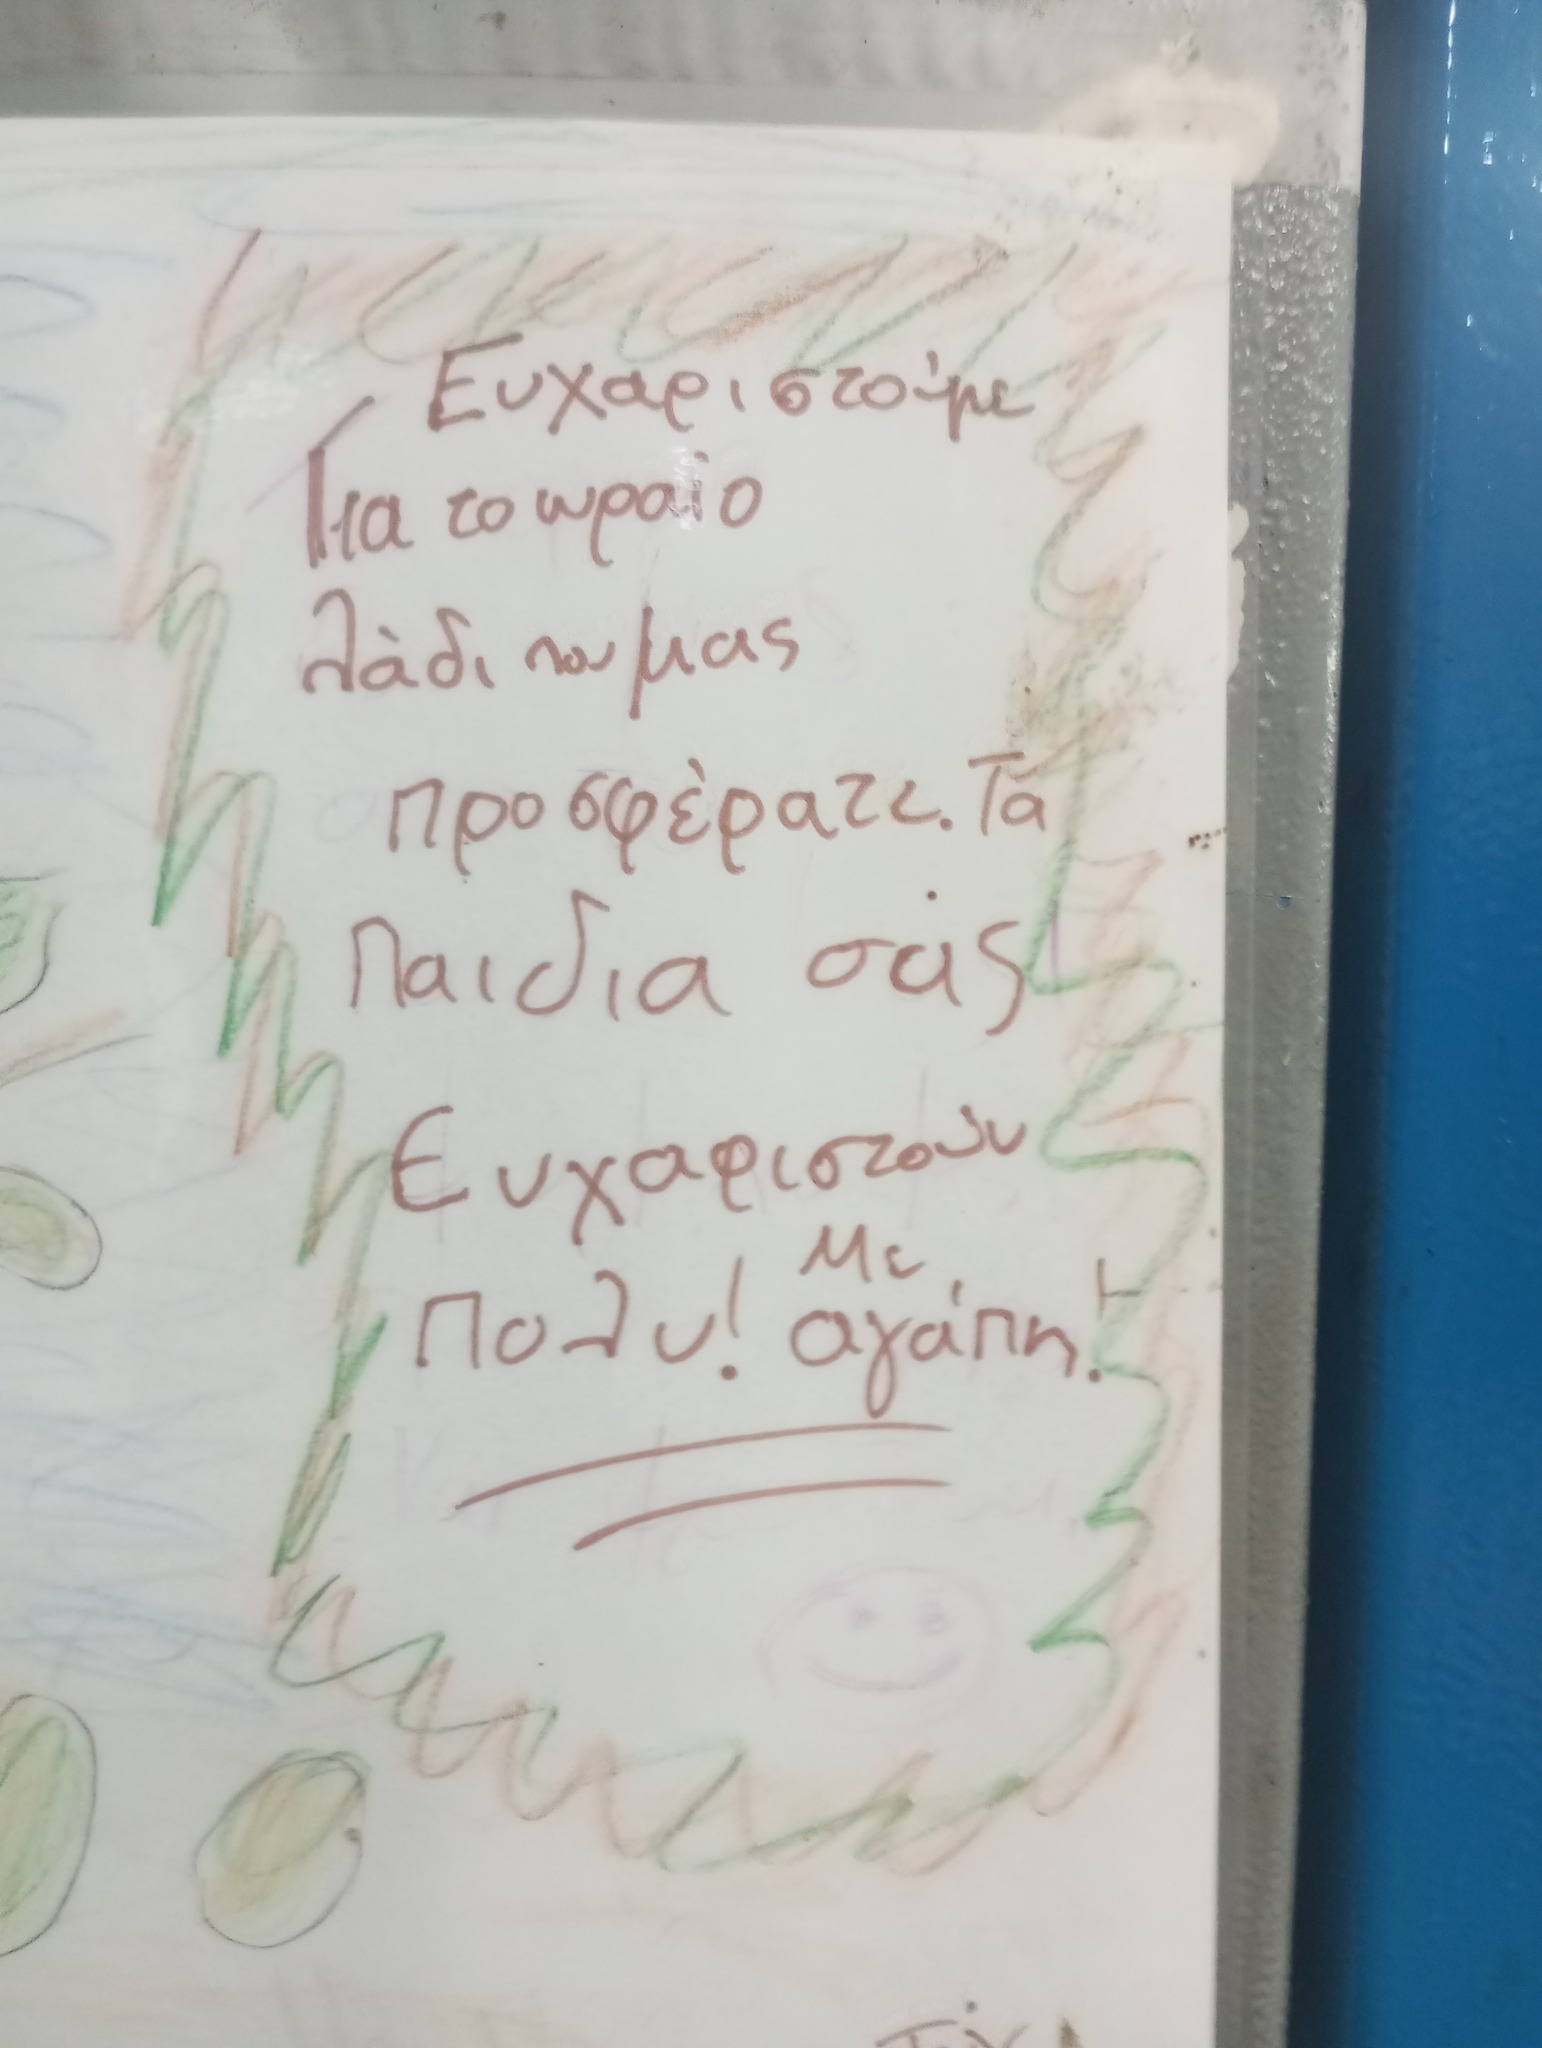 Ευχαριστούμε
Για το ωραίο
λάδι που μας
προσφέρατε. Τα
Παιδια σας
Ευχαριστούν
Πολυ! Με αγάπη!